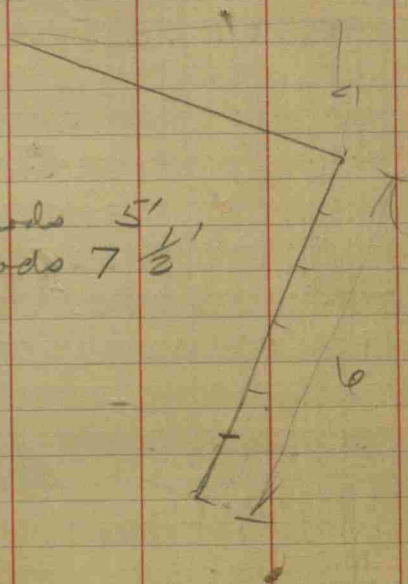 ods 5'
ods 7 1/2'
6